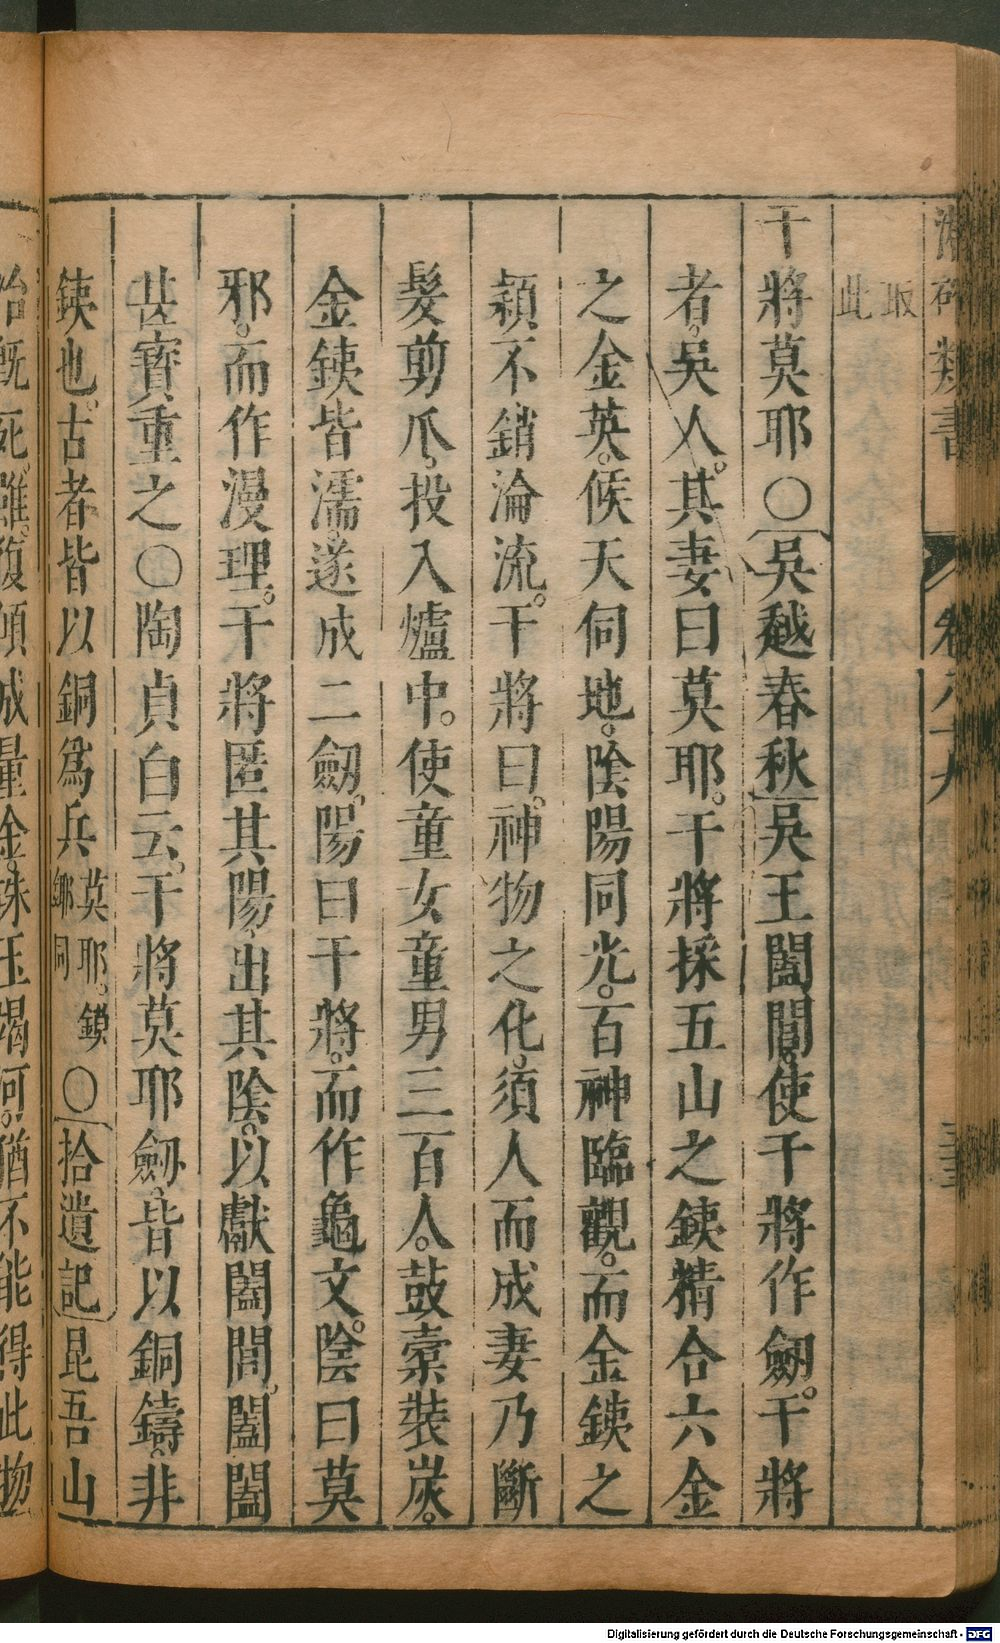 潛確類書 卷八十九
取
此
干將莫耶○吳越春秋吳王闔閭。使干將作劒。干將
者。吳人。其妻曰莫耶。干將採五山之鐵精合六金
之金英。候天伺地。陰陽同光。百神臨觀。而金鐵之
頴不銷淪流。干將曰。神物之化。須人而成妻乃斷
髮剪爪。投入爐中。使童女童男三百人。鼓橐裝炭。
金鐵皆濡。遂成二劒。陽曰干將。而作龜文。陰曰莫
邪。而作漫理。干將匿其陽。出其陰。以獻闔閭。闔閭
甚寶重之○陶貞白云。干將莫耶劒。皆以銅鑄。非
鐵也。古者皆以銅爲兵莫耶。鏌鎁同○拾遺記昆吾山
冶既死。雖復傾城量金。珠玉竭河。猶不能得此物
Digitalisierung gefördert durch die Deutsche Forschungsgemeinschaft - DFG